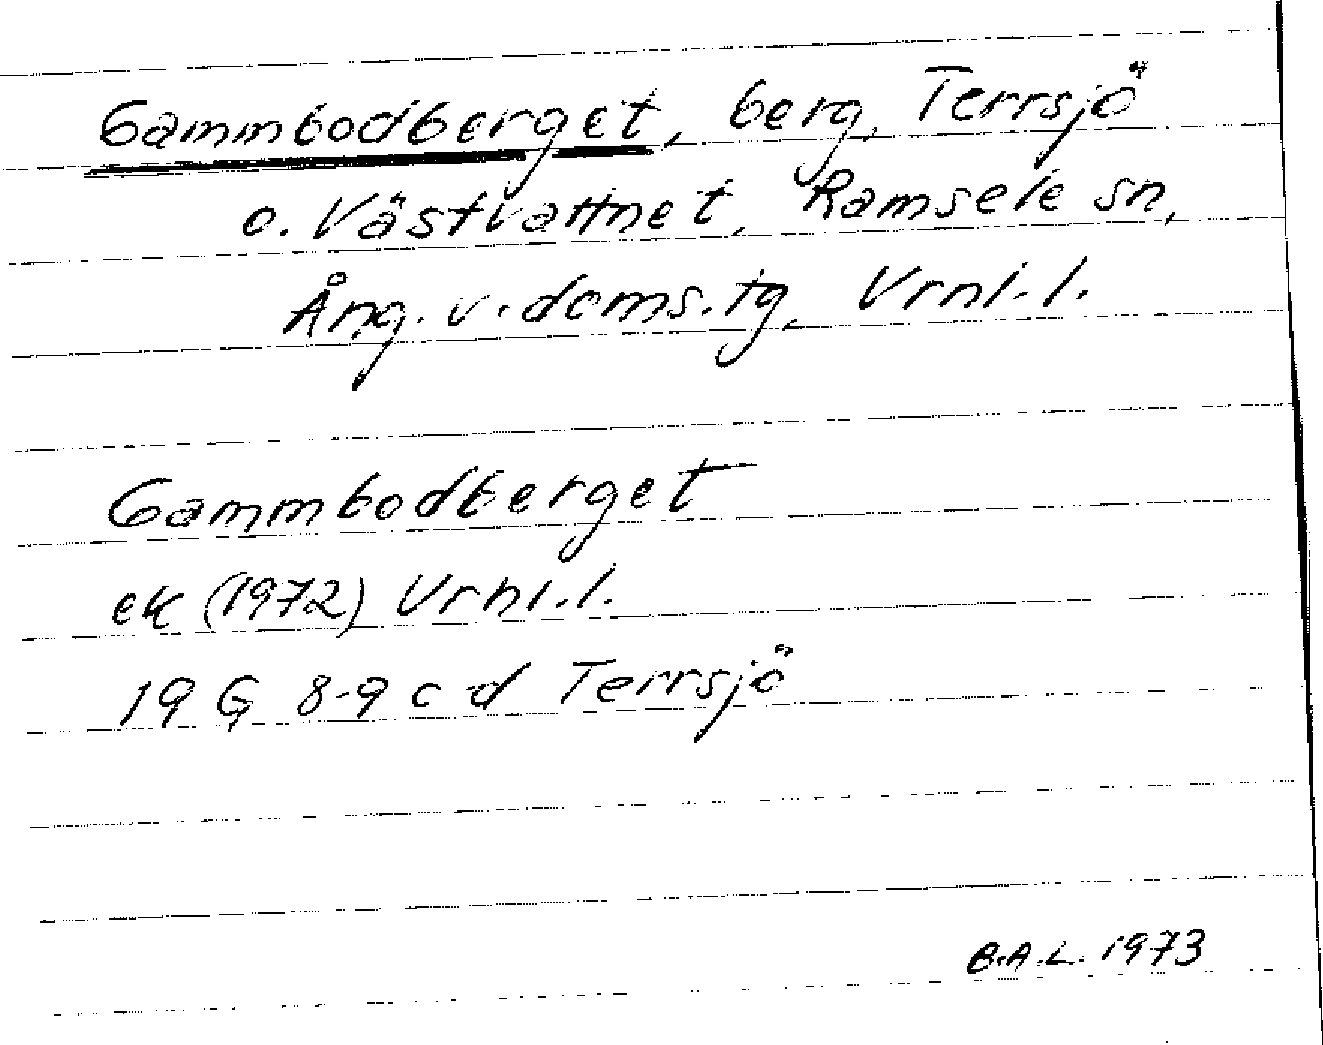 Gammbodberget, berg, Terrsjö
o. Västvattnet, Ramsele sn,
Ång. v. doms. tg, Vrnl. l.
Gammbodberget
ek (1972) Vrnl. l.
19 G 8-9 c-d Terrsjö
B.A.L. 1973